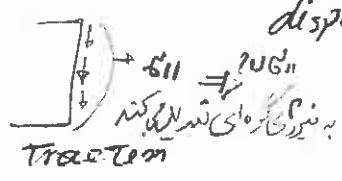 disp
σ11 ⇒ 2Uσ11
به نیروی گره‌ای تبدیل می‌کند
Traction